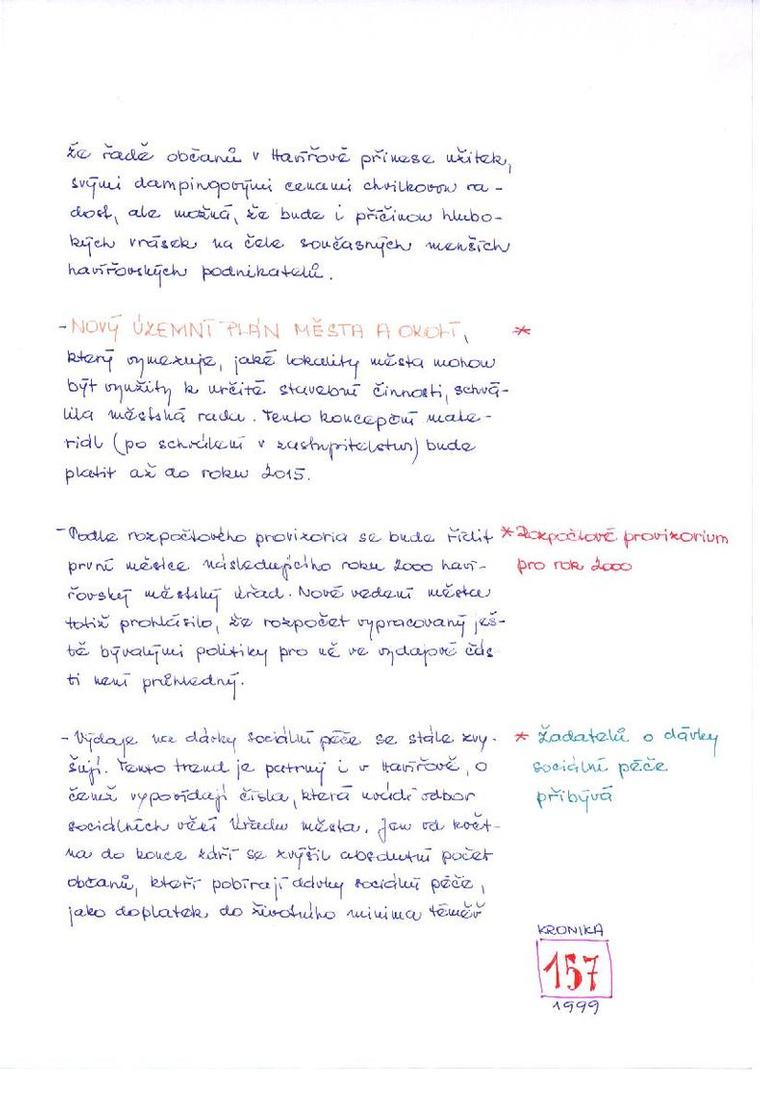 že řadě občanů v Havířově přinese užitek,
svými dampingovými cenami chvilkovou ra-
dost, ale možná, že bude i příčinou hlubo-
kých vrásek na čele současných menších
havířovských podnikatelů.
- NOVÝ ÚZEMNÍ PLÁN MĚSTA A OKOLÍ, *
který vymezuje, jaké lokality města mohou
být využity k určité stavební činnosti, schvá-
lila městská rada. Tento koncepční mate-
riál (po schválení v zastupitelstvu) bude
platit až do roku 2015.
- Podle rozpočtového provizoria se bude řídit
první měsíce následujícího roku 2000 haví-
řovský městský úřad. Nové vedení města
totiž prohlásilo, že rozpočet vypracovaný ješ-
tě bývalými politiky pro ně ve výdajové čás
ti není průhledný.
* Rozpočtové provizorium
pro rok 2000
- Výdaje na dávky sociální péče se stále zvy-
šují. Tento trend je patrný i v Havířově, o
čemž vypovídají čísla, která uvádí odbor
sociálních věcí Úřadu města. Jen od květ-
na do konce září se zvýšil absolutní počet
občanů, kteří pobírají dávky sociální péče,
jako doplatek do životního minima téměř
* Žadatelů o dávky
sociální péče
přibývá
KRONIKA
157
1999